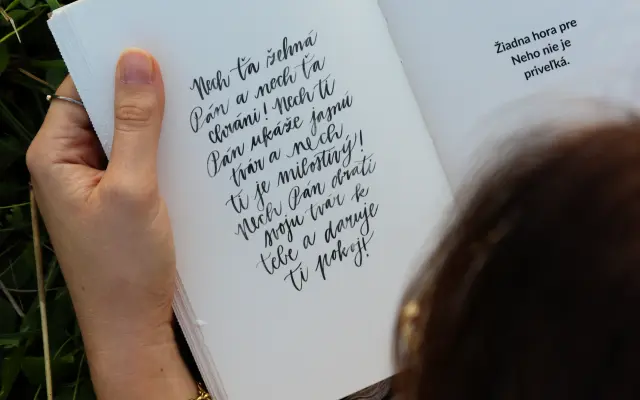 Nech ťa žehná
Pán a nech ťa
chráni! Nech ti
Pán ukáže jasnú
tvár a nech
ti je milostivý!
Nech Pán obráti
svoju tvár k
tebe a daruje
ti pokoj!
Žiadna hora pre
Neho nie je
priveľká.